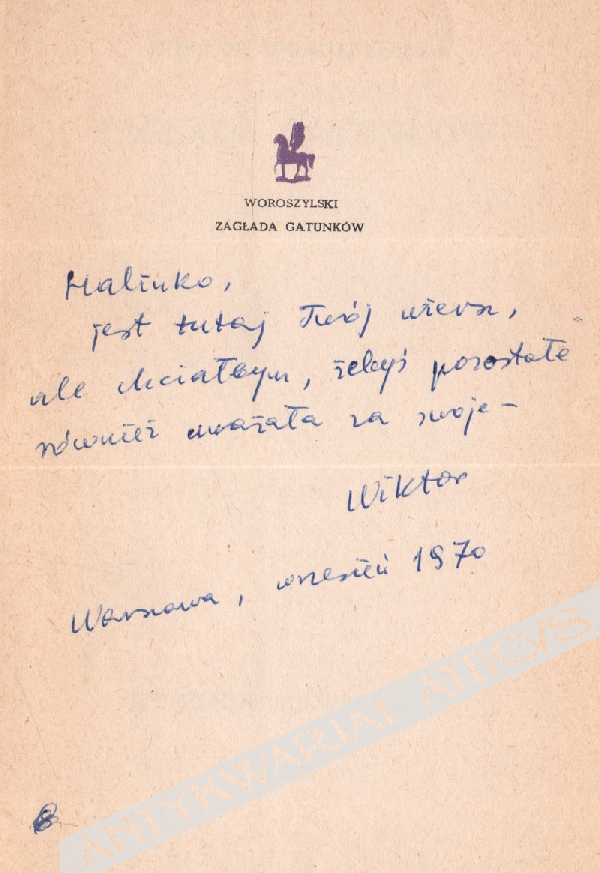 WOROSZYLSKI
ZAGŁADA GATUNKÓW
Halinko,
jest tutaj Twój wiersz,
ale chciałbym, żebyś pozostałe
również uważała za swoje –
Wiktor
Warszawa, wrzesień 1970
ANTYKWARIAT ATTICVS